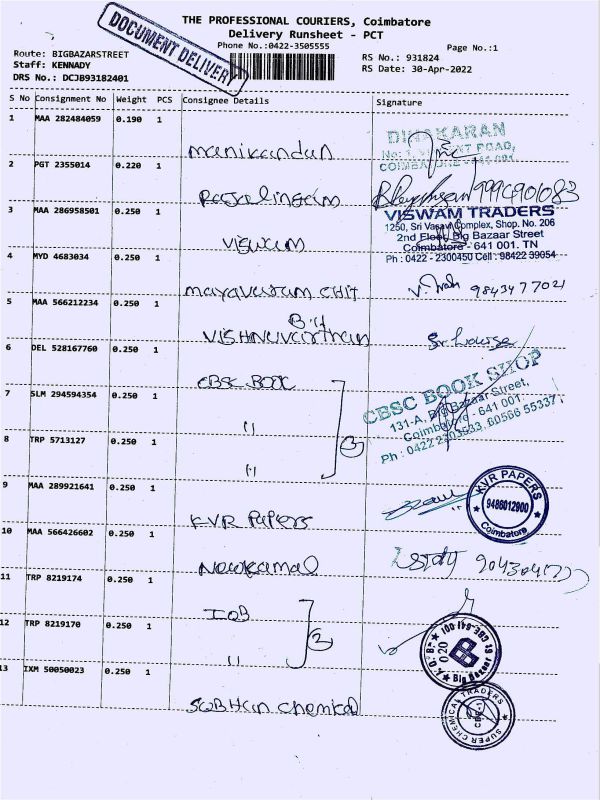 THE PROFESSIONAL COURIERS, Coimbatore
Delivery Runsheet - PCT
Phone No.:0422-3505555
Page No.:1
DOCUMENT DELIVERY
Route: BIGBAZARSTREET
Staff: KENNADY
DRS No.: DCJB93182401
RS No.: 931824
RS Date: 30-Apr-2022
S No Consignment No Weight PCS Consignee Details Signature
1 MAA 282484059 0.190 1
manikandan
DINAKARAN
2 PGT 2355014 0.220 1
Rajalingam
3 MAA 286958501 0.250 1
viswam
VISWAM TRADERS
1250, Sri Vasavi Complex, Shop. No. 206
2nd Floor, Big Bazaar Street
Coimbatore - 641 001. TN
Ph : 0422 - 2300450 Cell : 98422 39054
4 MYD 4683034 0.250 1
mayavaram chit
9843477021
5 MAA 566212234 0.250 1
VISHNUvarthan
6 DEL 528167760 0.250 1
CBSC BOOK
CBSC BOOK SHOP
131-A, Big Bazaar Street,
Coimbatore - 641 001.
7 SLM 294594354 0.250 1
"
8 TRP 5713127 0.250 1
"
3
9 MAA 289921641 0.250 1
KVR Papers
KVR PAPERS
9486012900
Coimbatore
10 MAA 566426602 0.250 1
Newkamal
11 TRP 8219174 0.250 1
IOB
12 TRP 8219170 0.250 1
"
2
I.O.B.
020
Big Bazaar
13 IXM 50050023 0.250 1
SUBHAN chemical
SUPER CHEMICAL TRADERS
CBE-1